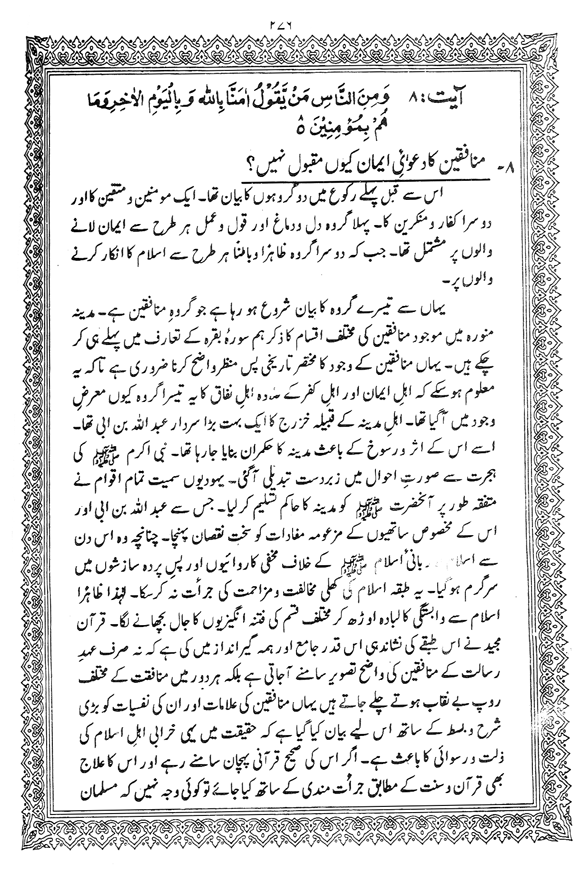 ۲۷۶
آیت: ۸ وَمِنَ النَّاسِ مَنْ يَّقُوْلُ اٰمَنَّا بِاللّٰهِ وَبِالْيَوْمِ الْاٰخِرِ وَمَا
هُمْ بِمُؤْمِنِيْنَ ۵
۸- منافقین کا دعوائے ایمان کیوں مقبول نہیں؟
اس سے قبل پہلے رکوع میں دو گروہوں کا بیان تھا۔ ایک مومنین و متقین کا اور
دوسرا کفار و منکرین کا۔ پہلا گروہ دل و دماغ اور قول و عمل ہر طرح سے ایمان لانے
والوں پر مشتمل تھا۔ جب کہ دوسرا گروہ ظاہرًا و باطنًا ہر طرح سے اسلام کا انکار کرنے
والوں پر۔
یہاں سے تیسرے گروہ کا بیان شروع ہو رہا ہے جو گروہِ منافقین ہے۔ مدینہ
منورہ میں موجود منافقین کی مختلف اقسام کا ذکر ہم سورۂ بقرہ کے تعارف میں پہلے ہی کر
چکے ہیں۔ یہاں منافقین کے وجود کا مختصر تاریخی پس منظر واضح کرنا ضروری ہے تاکہ یہ
معلوم ہو سکے کہ اہلِ ایمان اور اہلِ کفر کے علاوہ اہلِ نفاق کا یہ تیسرا گروہ کیوں معرضِ
وجود میں آگیا تھا۔ اہلِ مدینہ کے قبیلہ خزرج کا ایک بہت بڑا سردار عبد اللہ بن ابی تھا۔
اسے اس کے اثر و رسوخ کے باعث مدینہ کا حکمران بنایا جا رہا تھا۔ نبی اکرم ﷺ کی
ہجرت سے صورتِ احوال میں زبردست تبدیلی آگئی۔ یہودیوں سمیت تمام اقوام نے
متفقہ طور پر آنحضرت ﷺ کو مدینہ کا حاکم تسلیم کر لیا۔ جس سے عبد اللہ بن ابی اور
اس کے مخصوص ساتھیوں کے مزعومہ مفادات کو سخت نقصان پہنچا۔ چنانچہ وہ اس دن
سے اسلام بانئ اسلام ﷺ کے خلاف مخفی کاروائیوں اور پس پردہ سازشوں میں
سرگرم ہو گیا۔ یہ طبقہ اسلام کی کھلی مخالفت و مزاحمت کی جرأت نہ کر سکا۔ لہٰذا ظاہرًا
اسلام سے وابستگی کا لبادہ اوڑھ کر مختلف قسم کی فتنہ انگیزیوں کا جال بچھانے لگا۔ قرآن
مجید نے اس طبقے کی نشاندہی اس قدر جامع اور ہمہ گیر انداز میں کی ہے کہ نہ صرف عہدِ
رسالت کے منافقین کی واضح تصویر سامنے آجاتی ہے بلکہ ہر دور میں منافقت کے مختلف
روپ بے نقاب ہوتے چلے جاتے ہیں یہاں منافقین کی علامات اور ان کی نفسیات کو بڑی
شرح و بسط کے ساتھ اس لیے بیان کیا گیا ہے کہ حقیقت میں یہی خرابی اہلِ اسلام کی
ذلت و رسوائی کا باعث ہے۔ اگر اس کی صحیح قرآنی پہچان سامنے رہے اور اس کا علاج
بھی قرآن و سنت کے مطابق جرأت مندی کے ساتھ کیا جائے تو کوئی وجہ نہیں کہ مسلمان